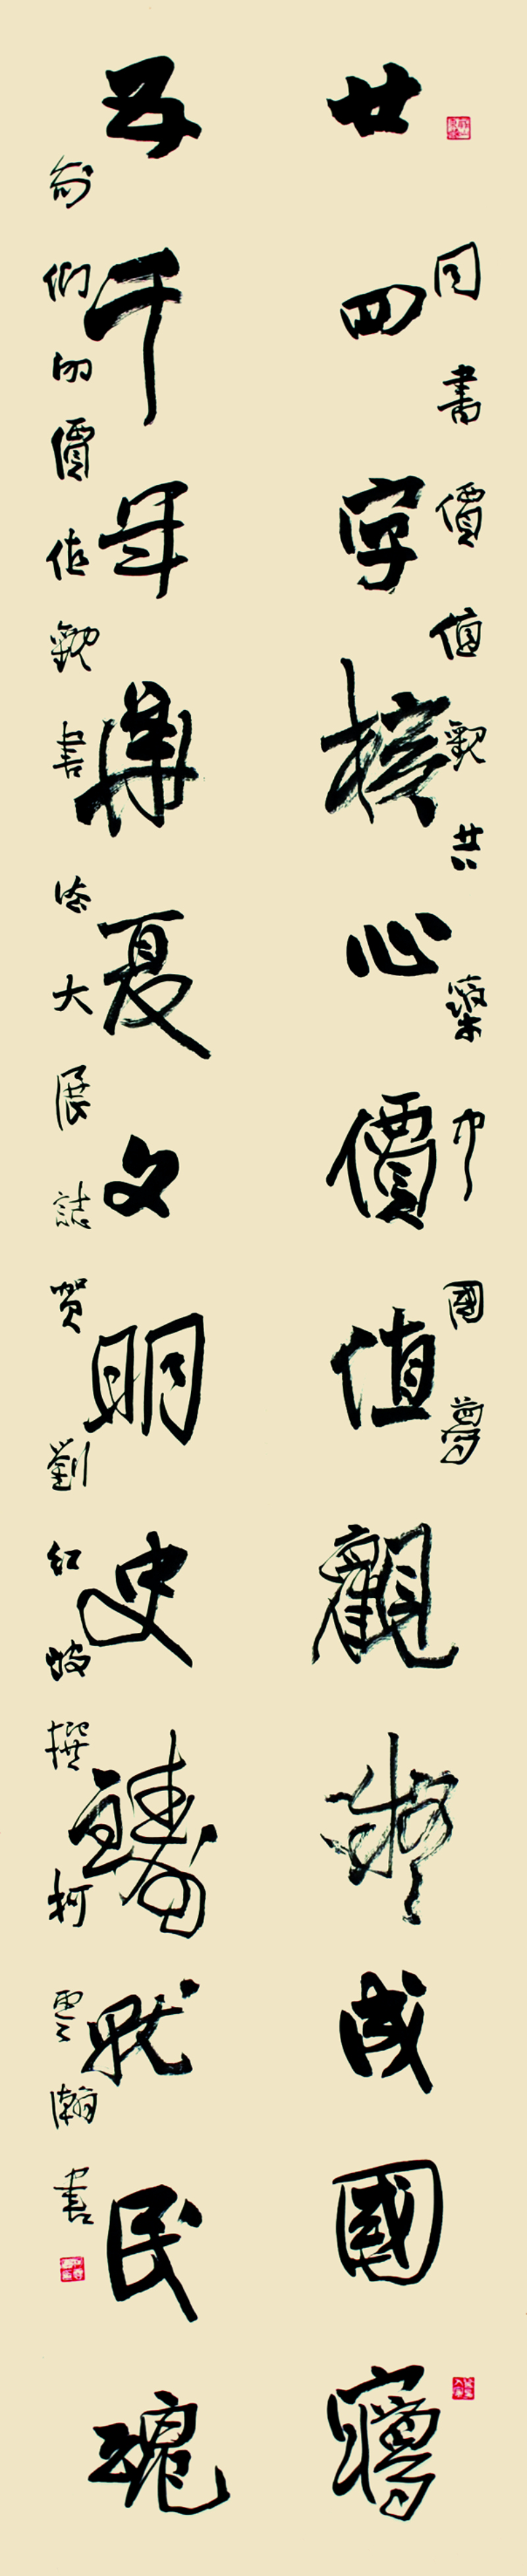 同書價值觀共築中國夢
廿四字核心價值觀凝成國夢
五千年華夏文明史鑄就民魂
們的價值觀書法大展誌賀劉紅撰柯雲瀚書